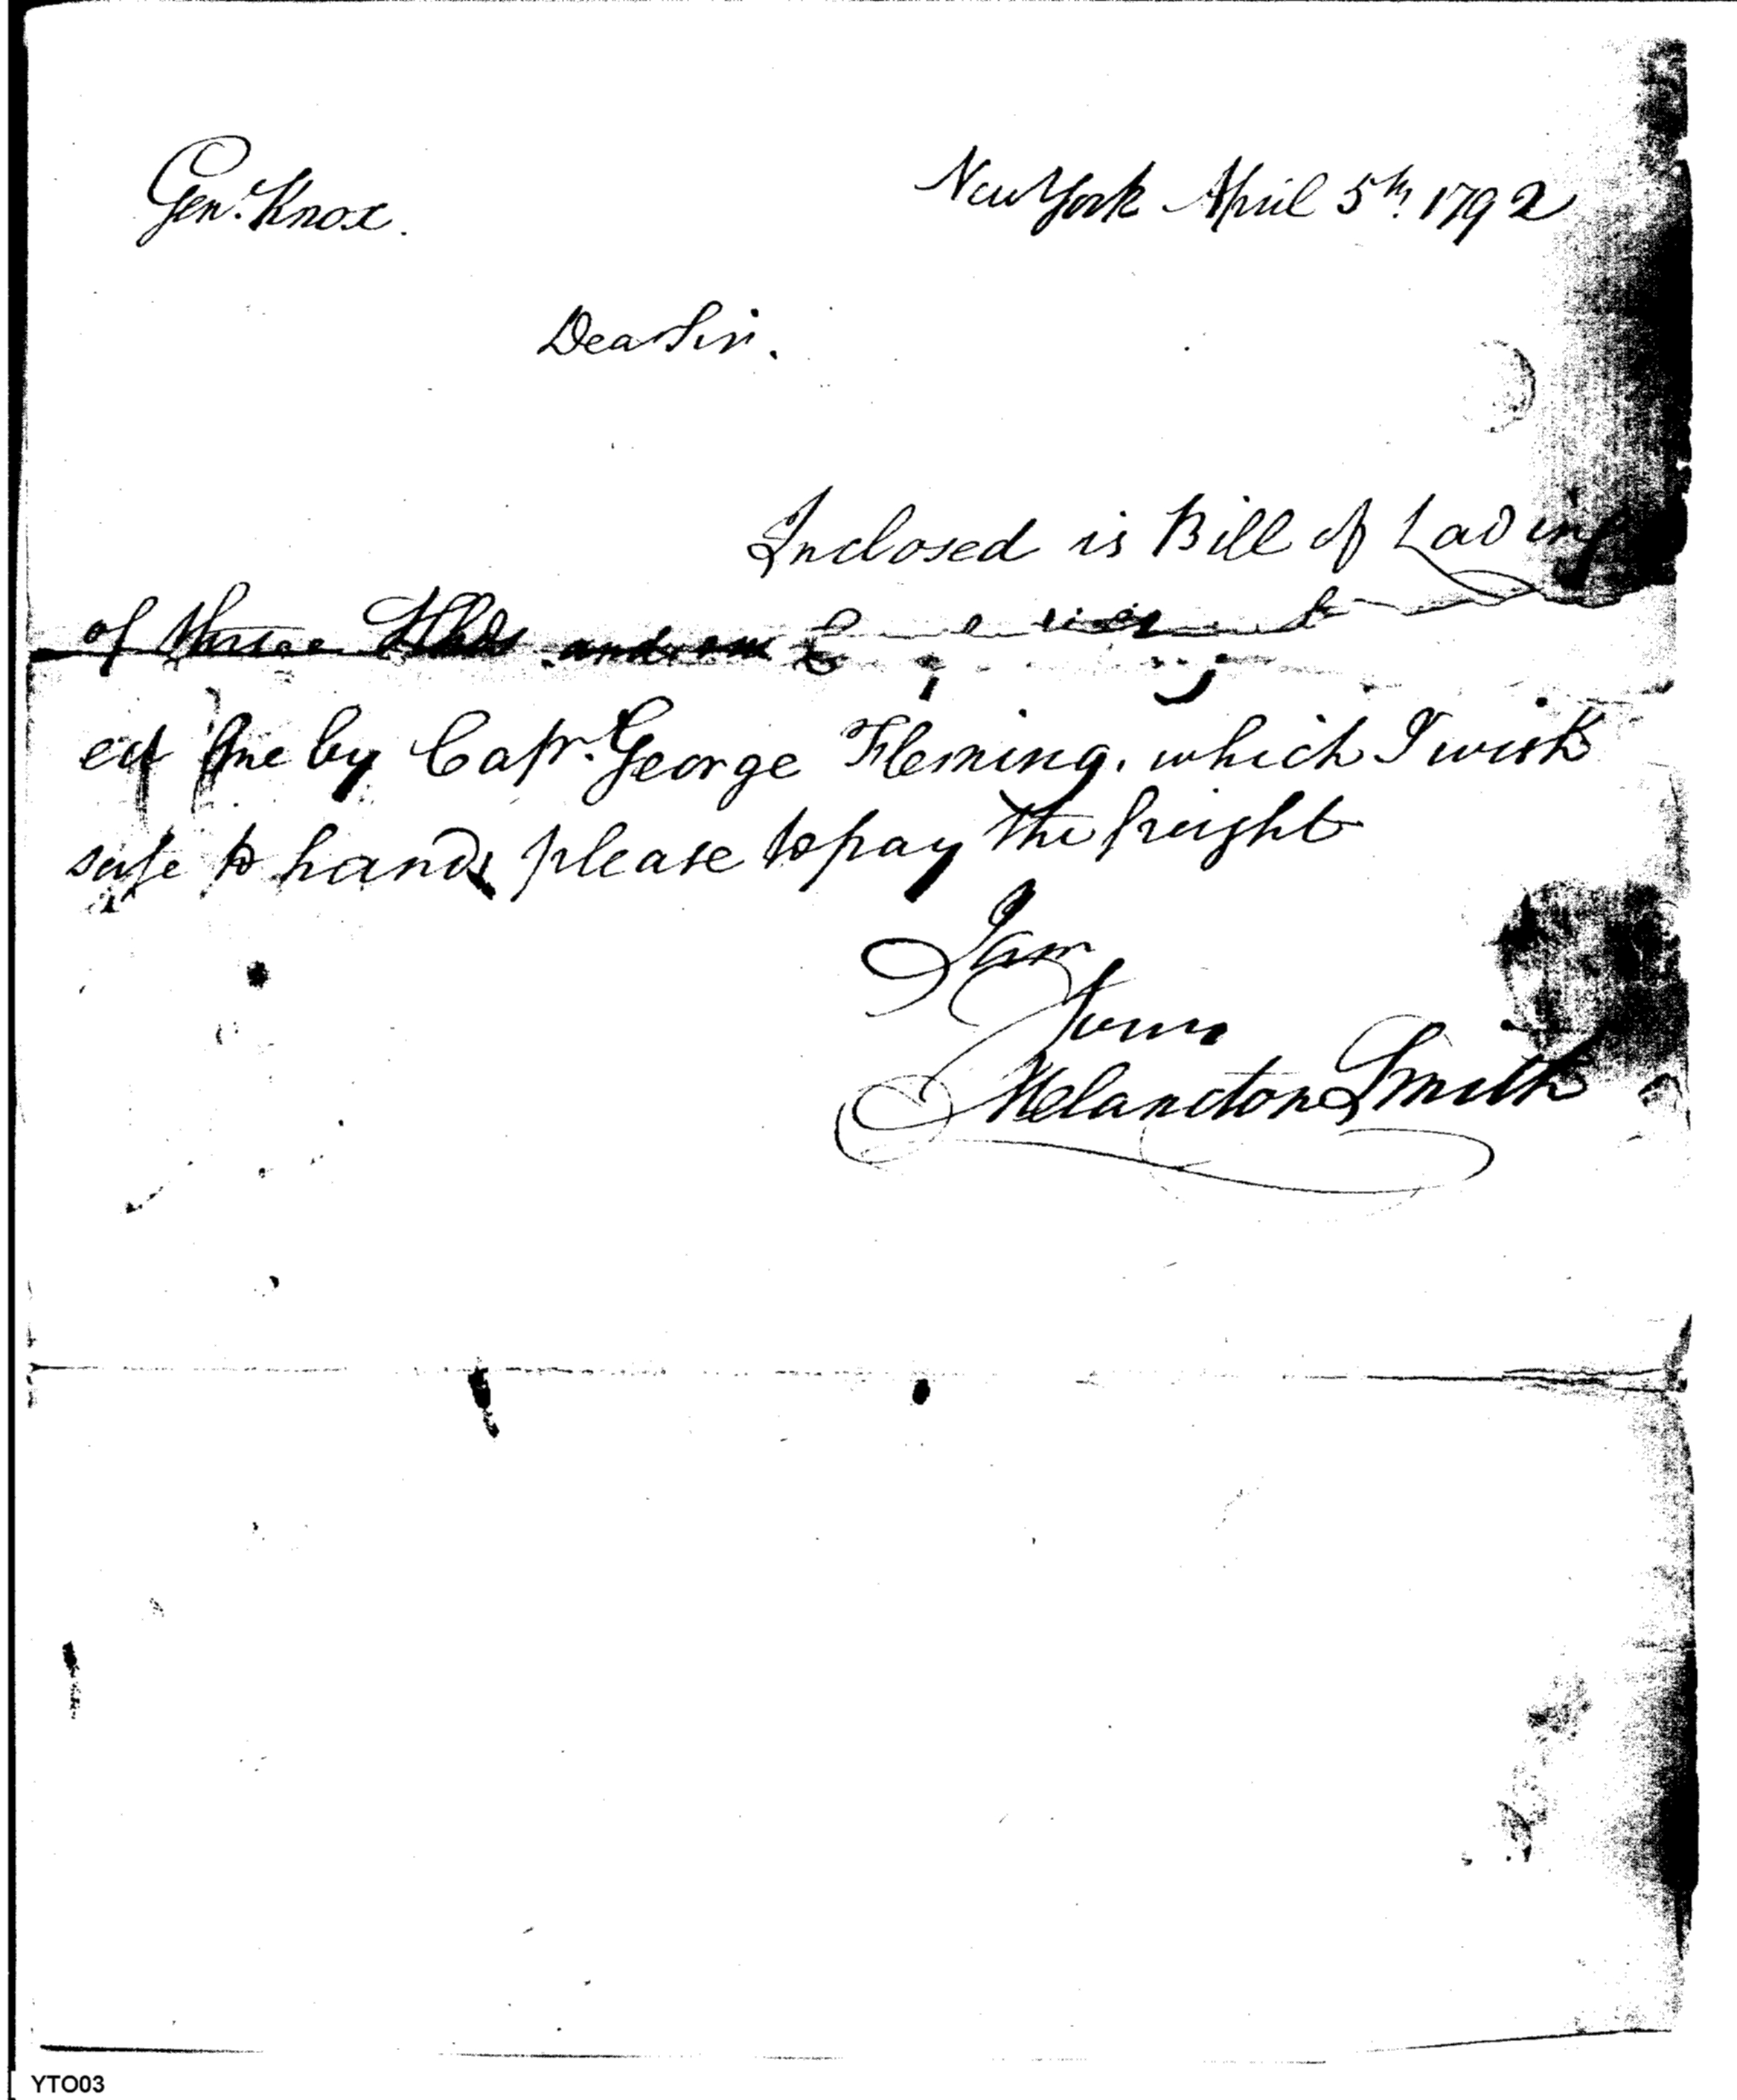 Genl. Knox.
New York April 5th 1792
Dear Sir.
Inclosed is Bill of Lading
of three Hhds and one
ed me by Capt. George Fleming, which I wish
safe to hand, please to pay the freight
I am
Yours
Melancton Smith
YTO03